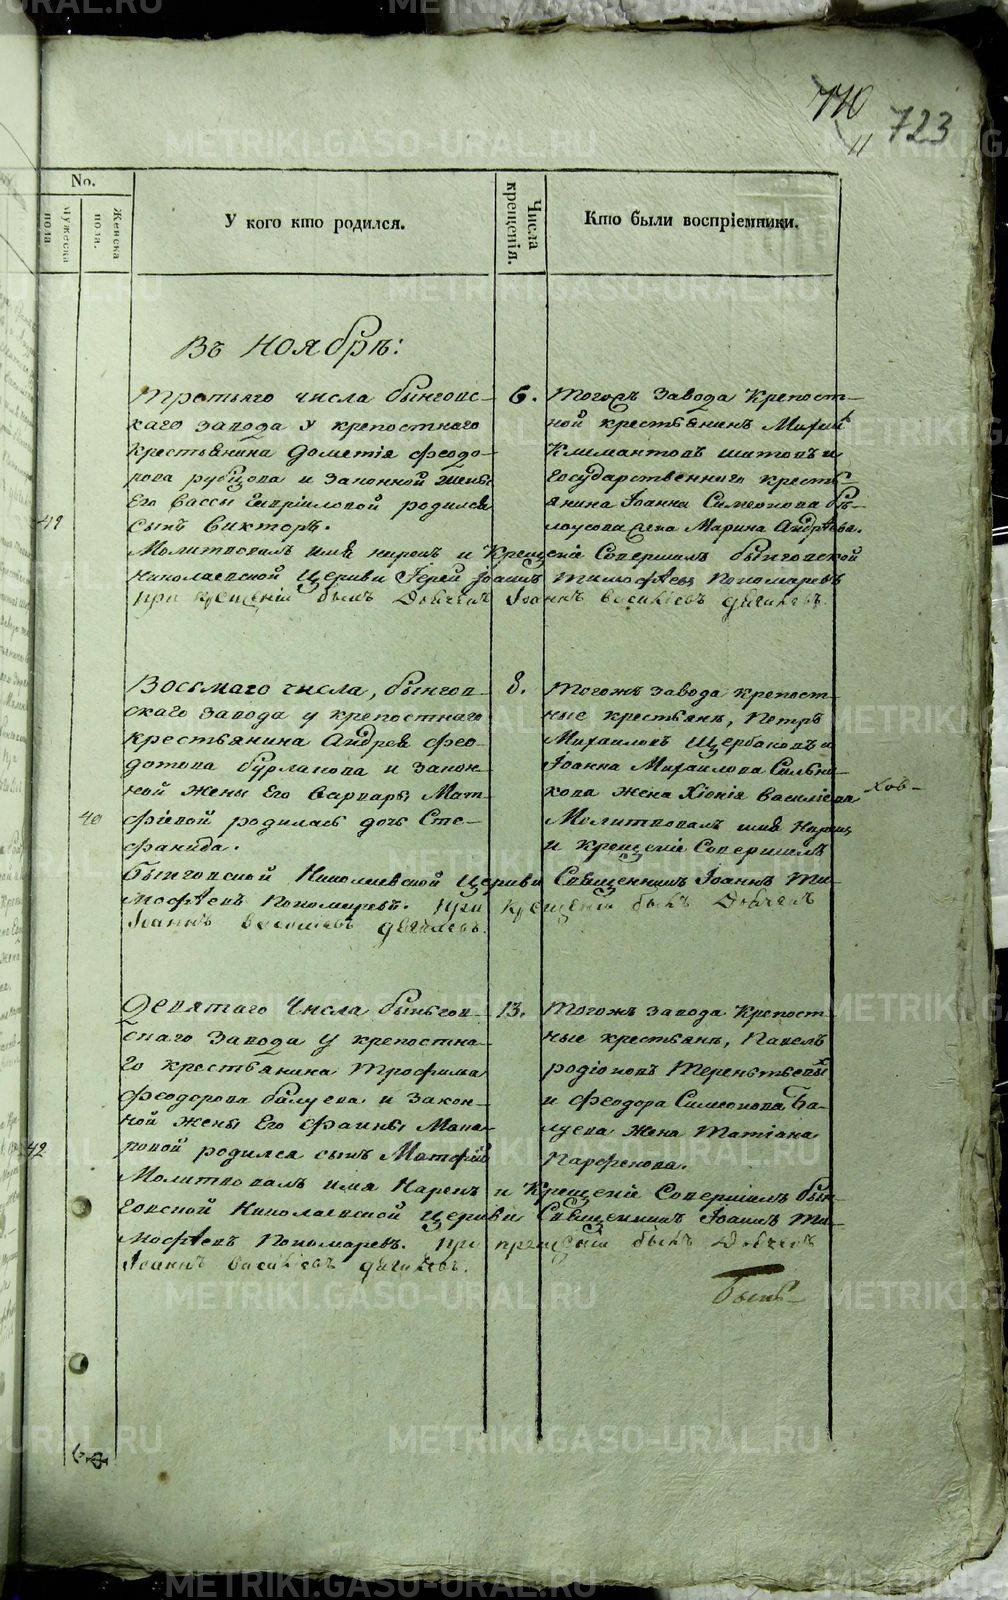 710
11 723
No.
Мужеска пола.
Женска пола.
У кого кто родился.
Числа крещенія.
Кто были воспріемники.
Въ Ноябрѣ:
41
Третьяго числа быньговс-
каго завода у крепостнаго
крестьянина Дометія Феодо-
рова рубцова и законной жены
Его Вассы Гавріиловой родился
сынъ Викторъ.
6.
Тогожъ завода Крепост-
ной крестьянинъ
Климантовъ шитовъ и
Государственнаго кресть-
янина Іоанна Симеонова бѣ-
лоусова жена Марина Андрѣева.
Молитвовалъ имя нарекъ и Крещеніе Совершалъ быньговской
Николаевской Церкви Іерей Іоаннъ Тимофѣевъ Пономаревъ
при крещеніи былъ Дьячекъ Іоаннъ васильевъ
40
Восьмаго числа, быньгов-
скаго завода у крепостнаго
крестьянина Андрея Фео-
дотова бурлакова и закон-
ной жены Его Варвары Мат-
фіевой родилась дочь Сте-
фанида.
8.
Тогожъ завода крепост-
ные крестьянъ, Петръ
Михаиловъ Щербаковъ и
Іоанна Михаилова Сильни-
кова жена Хіонія Василіева
Молитвовалъ имя Нарекъ
и Крещеніе Совершалъ
хов-
быньговской Николаевской Церкви Священникъ Іоаннъ Ти-
мофѣевъ Пономаревъ. При крещеніи былъ Дьячекъ
Іоаннъ васильевъ
42
Девятаго Числа быньгов-
скаго завода у крепостна-
го крестьянина Трофима
Феодорова балуева и закон-
ной жены Его Фаины Мака-
ровой родился сынъ Матфій
13.
Тогожъ завода Крепост-
ные крестьянъ, Павелъ
родіоновъ Терентьевых
и Феодора Симеонова Ба-
луева жена Татіана
Парфенова.
Молитвовалъ имя Нарекъ и Крещеніе Совершалъ бын-
говской Николаевской Церкви Священникъ Іоаннъ Ти-
мофѣевъ Пономаревъ. При крещеніи былъ Дьячекъ
Іоаннъ васильевъ
METRIKI.GASO-URAL.RU